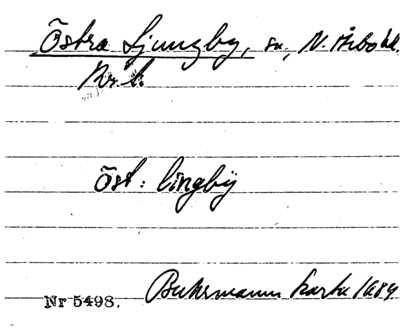 Östra Ljungby, sn, N. Åsbo hd.
Kr. l.
Öst: lingbÿ
Nr 5498. Buhrmanns karta 1684